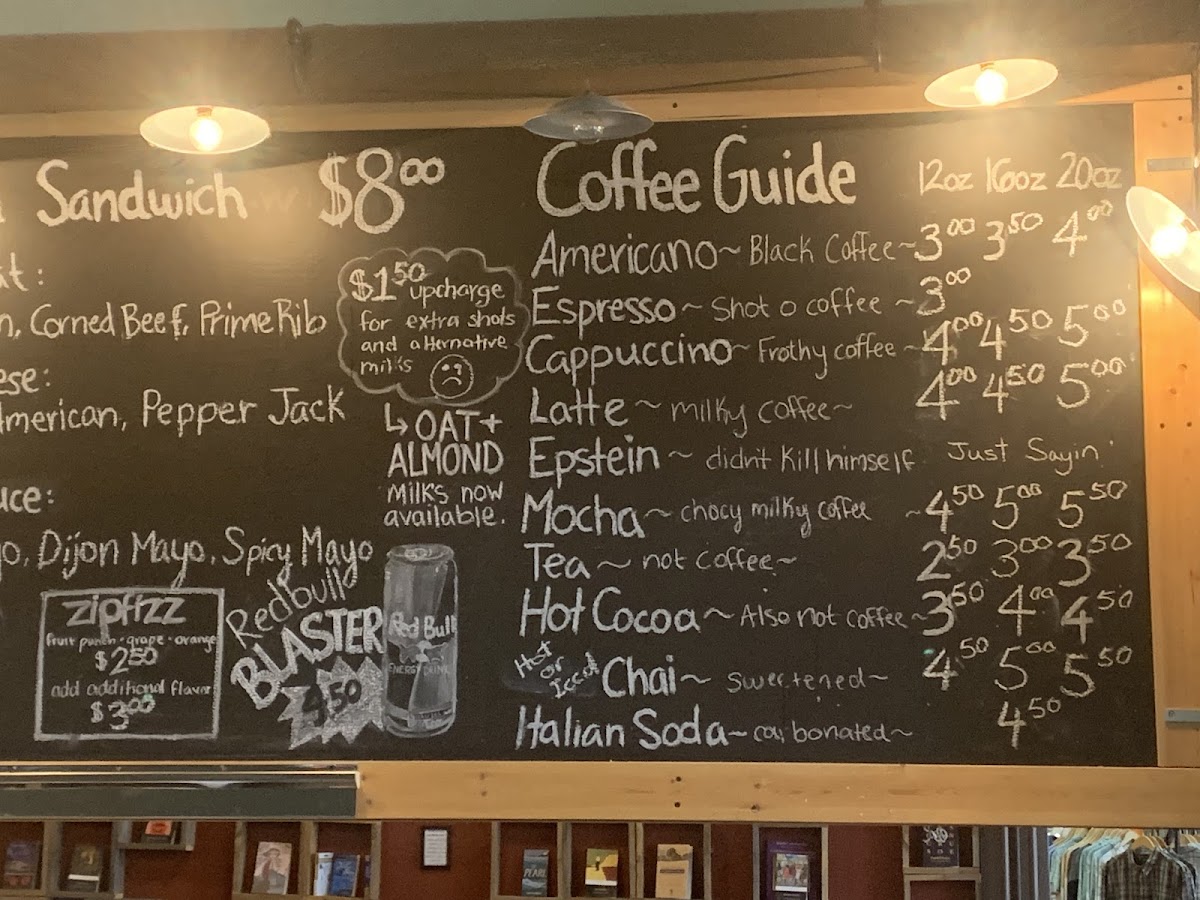 Sandwich $8.00
Corned Beef, Prime Rib
American, Pepper Jack
Dijon Mayo, Spicy Mayo
$1.50 upcharge
for extra shots
and alternative
milks
↳ OAT +
ALMOND
Milks now
available.
zipfizz
fruit punch · grape · orange
$2.50
add additional flavor
$3.00
Redbull
BLASTER
4.50
Red Bull
ENERGY DRINK
Coffee Guide 12oz 16oz 20oz
Americano ~ Black Coffee ~ 3.00 3.50 4.00
Espresso ~ Shot o coffee ~ 3.00
Cappuccino ~ Frothy coffee ~ 4.00 4.50 5.00
Latte ~ milky coffee ~ 4.00 4.50 5.00
Epstein ~ didnt Kill himself Just Sayin'
Mocha ~ chocy milky coffee ~ 4.50 5.00 5.50
Tea ~ not coffee ~ 2.50 3.00 3.50
Hot Cocoa ~ Also not coffee ~ 3.50 4.00 4.50
Hot or Iced Chai ~ sweetened ~ 4.50 5.00 5.50
Italian Soda ~ carbonated ~ 4.50
PEARL